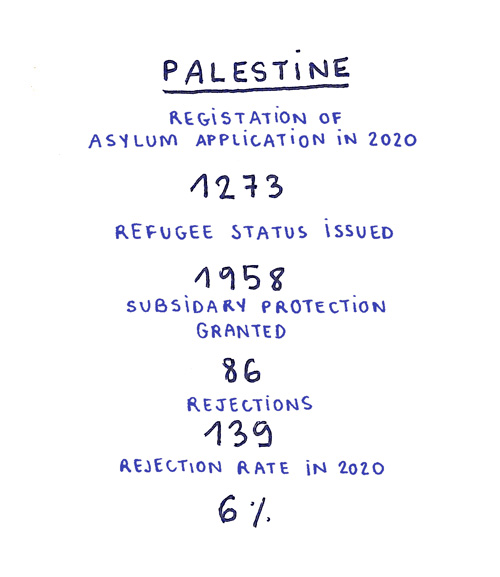 PALESTINE
REGISTATION OF
ASYLUM APPLICATION IN 2020
1273
REFUGEE STATUS ISSUED
1958
SUBSIDARY PROTECTION
GRANTED
86
REJECTIONS
139
REJECTION RATE IN 2020
6%